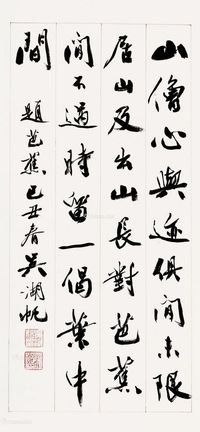 山僧心與迹俱閒未限
居山及出山長對芭蕉
閒不過時留一偈葉中
間
題芭蕉己丑春吳湖帆